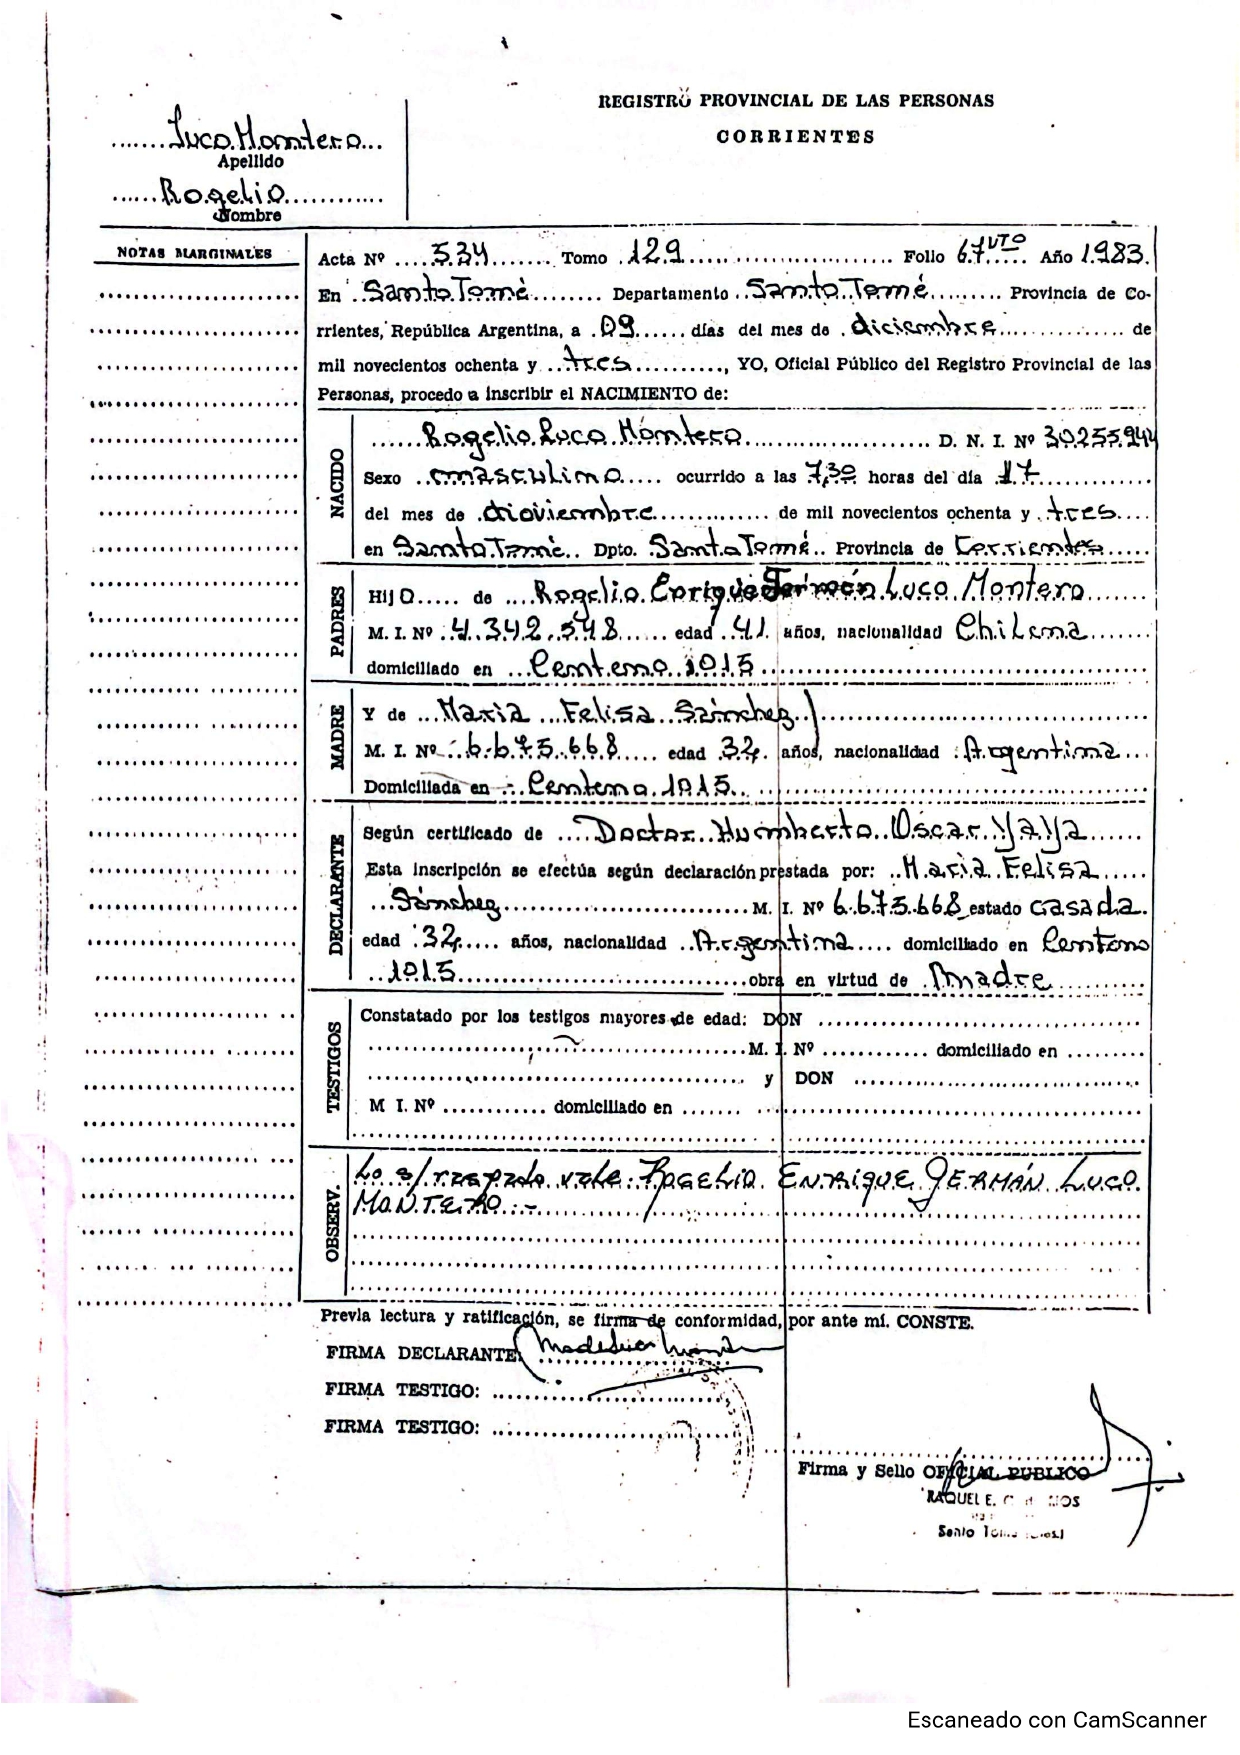 REGISTRO PROVINCIAL DE LAS PERSONAS
CORRIENTES
Luco Montero
Apellido
Rogelio
Nombre
NOTAS MARGINALES
Acta Nº 534 Tomo 129 Folio 67 VTO Año 1983
En Santo Tomé Departamento Santo Tomé Provincia de Co-
rrientes, República Argentina, a 09 días del mes de diciembre de
mil novecientos ochenta y tres, YO, Oficial Público del Registro Provincial de las
Personas, procedo a inscribir el NACIMIENTO de:
NACIDO
Rogelio Luco Montero D. N. I. Nº 30.255.944
Sexo masculino ocurrido a las 7,30 horas del día 17
del mes de noviembre de mil novecientos ochenta y tres
en Santo Tomé Dpto. Santo Tomé Provincia de Corrientes
PADRES
Hijo de Rogelio Enrique Germán Luco Montero
M. I. Nº 4.342.548 edad 41 años, nacionalidad Chilena
domiciliado en Centeno 1015
MADRE
Y de Maria Felisa Sánchez
M. I. Nº 6.675.668 edad 32 años, nacionalidad Argentina
Domiciliada en Centeno 1015
DECLARANTE
Según certificado de Doctor Humberto Oscar Yaya
Esta inscripción se efectúa según declaración prestada por: Maria Felisa
Sánchez M. I. Nº 6.675.668 estado casada
edad 32 años, nacionalidad Argentina domiciliado en Centeno
1015 obra en virtud de Madre
TESTIGOS
Constatado por los testigos mayores de edad: DON
M. I. Nº domiciliado en
y DON
M I. Nº domiciliado en
OBSERV.
Lo s/raspado vale: Rogelio Enrique Germán Luco
Montero.-
Previa lectura y ratificación, se firma de conformidad, por ante mí. CONSTE.
FIRMA DECLARANTE
FIRMA TESTIGO:
FIRMA TESTIGO:
Firma y Sello OFICIAL PUBLICO
RAQUEL E.
Santo Tomé
Escaneado con CamScanner